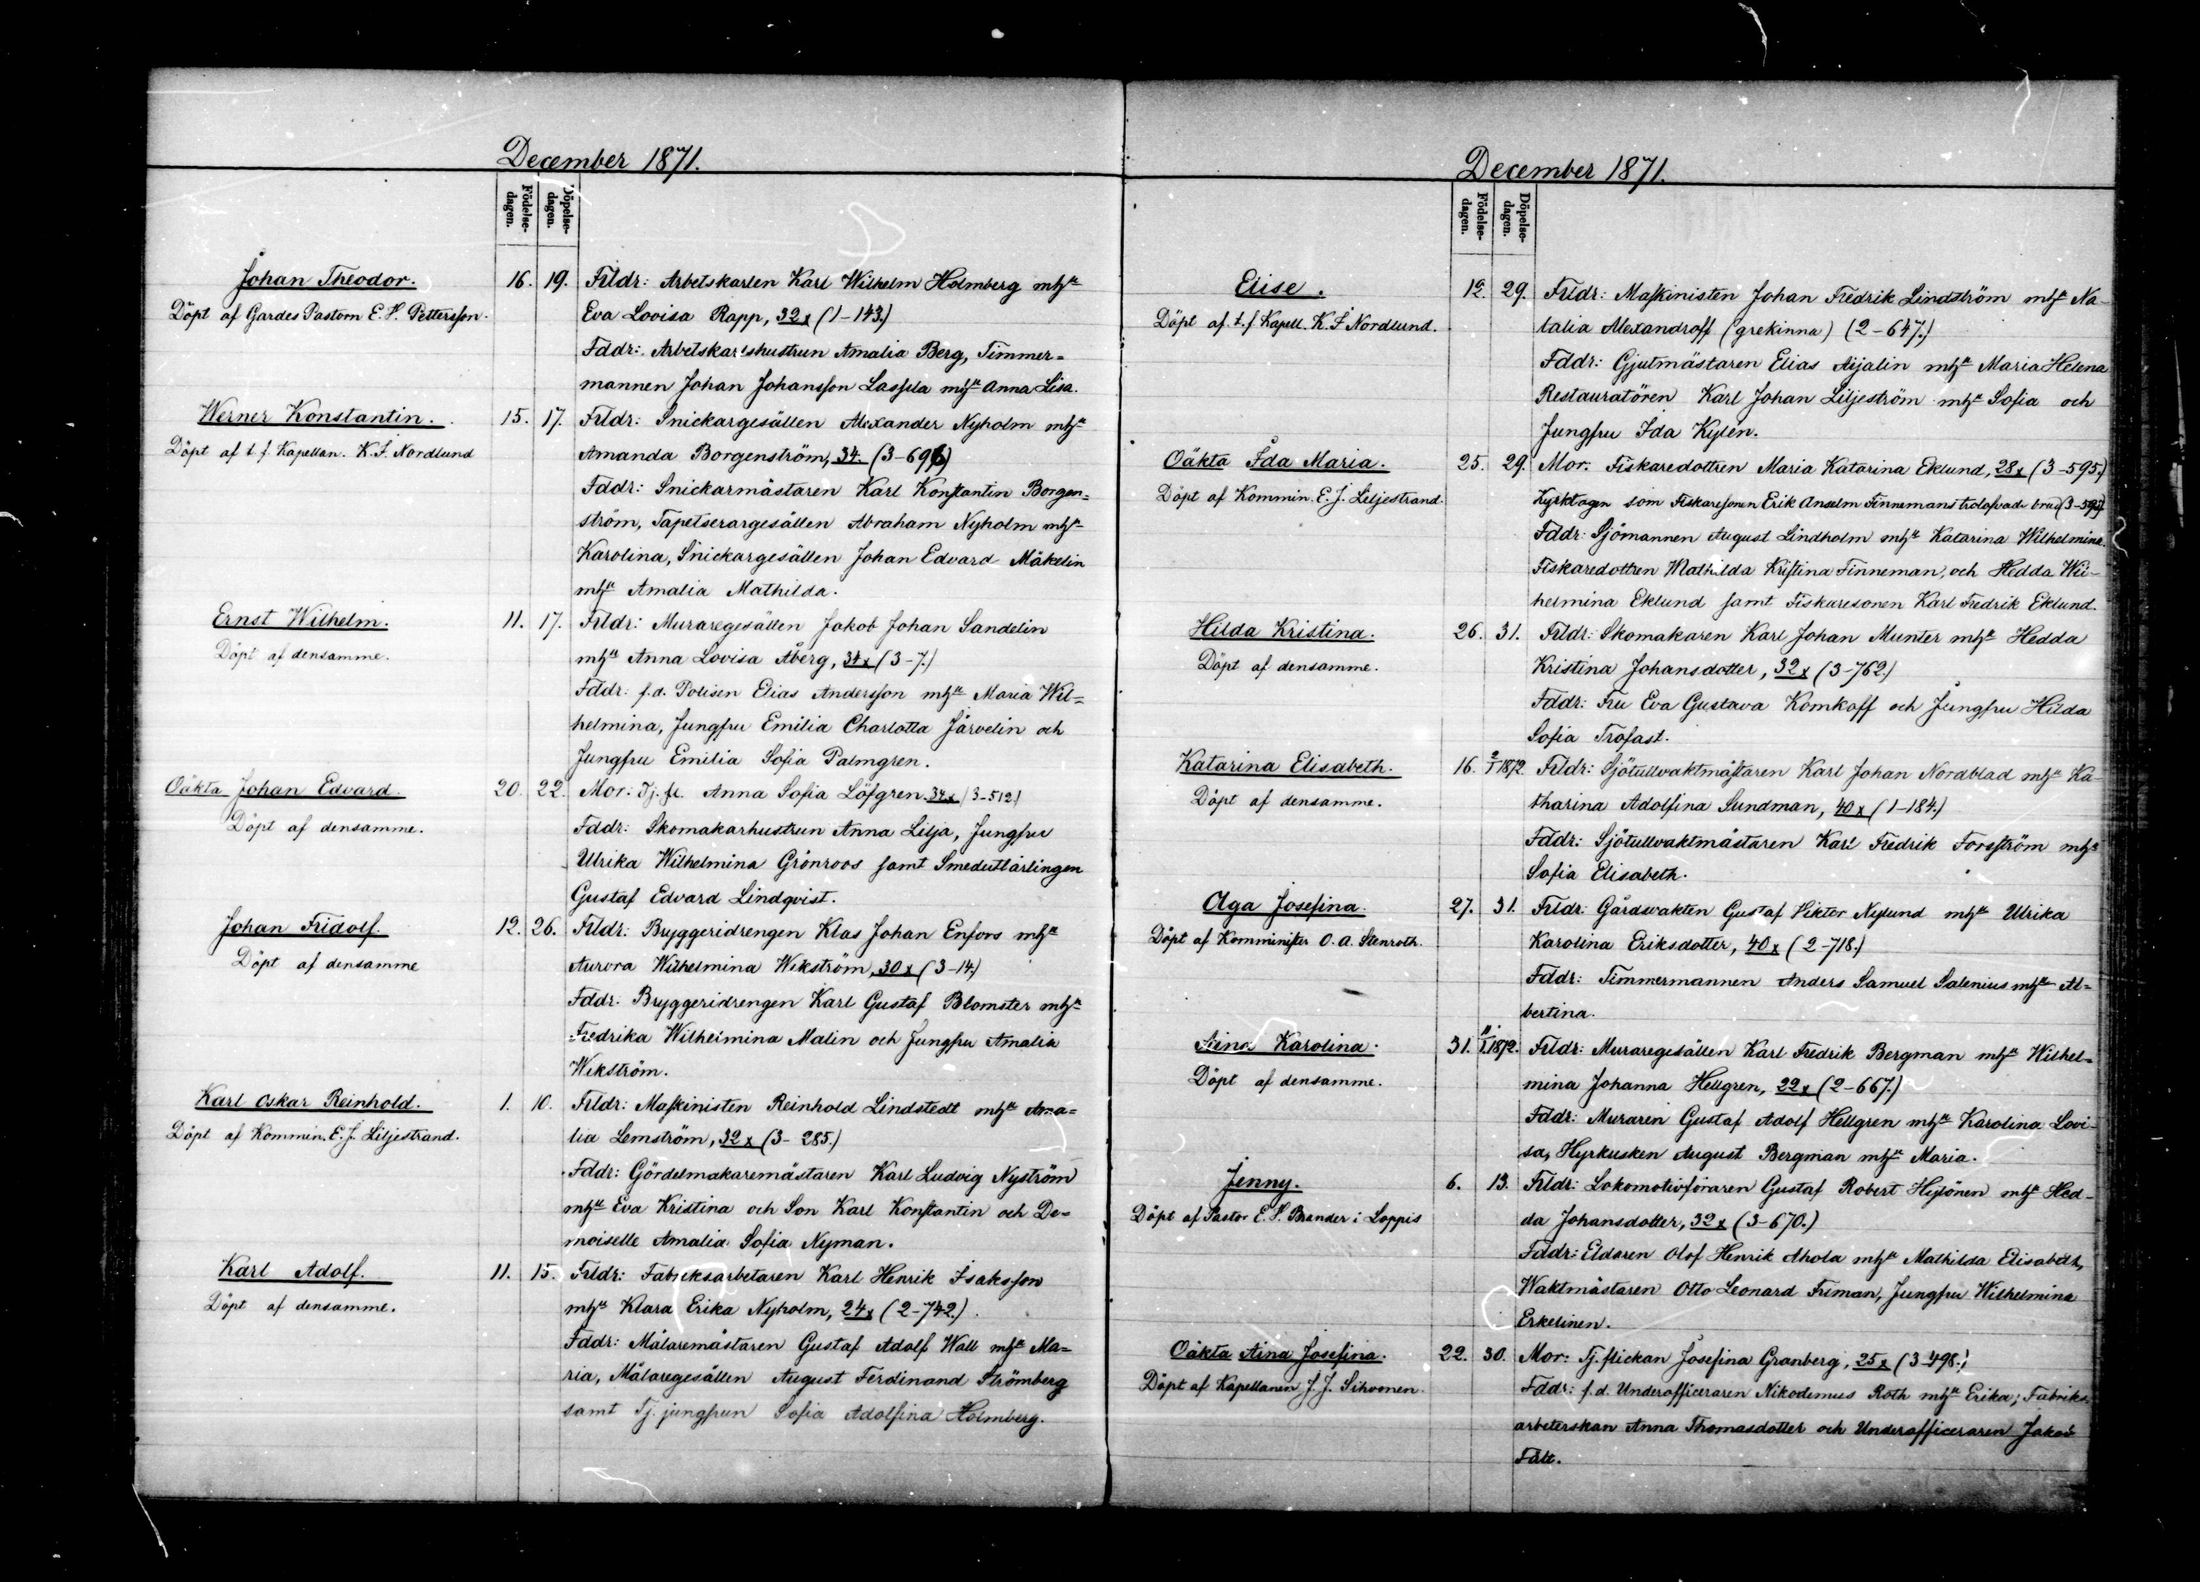 December 1871.
Födelse-
dagen.
Döpelse-
dagen.
Johan Theodor.
Döpt af Gardes Pastorn E. S. Pettersson.
16. 19. Frldr: Arbetskarlen Karl Wilhelm Holmberg mhu
Eva Lovisa Rapp, 32x (1-143.)
Fddr: Arbetskarlshustrun Amalia Berg, Timmer=
mannen Johan Johansson Lassila mhu Anna Lisa.
Werner Konstantin.
Döpt af t. f. Kapellan. K. F. Nordlund
15. 17. Frldr: Snickargesällen Alexander Nyholm mhu
Amanda Borgenström, 34. (3-696)
Fddr: Snickarmästaren Karl Konstantin Borgen=
ström, Tapetserargesällen Abraham Nyholm mhu
Karolina, Snickargesällen Johan Edvard Mäkelin
mhu Amalia Mathilda.
Ernst Wilhelm.
Döpt af densamme.
11. 17. Frldr: Muraregesällen Jakob Johan Sandelin
mhu Anna Lovisa Åberg, 34x (3-7.)
Fddr: f.d. Polisen Elias Andersson mhu Maria Wil=
helmina, Jungfru Emilia Charlotta Järvelin och
Jungfru Emilia Sofia Palmgren.
Oäkta Johan Edvard.
Döpt af densamme.
20. 22. Mor: Tj. fl. Anna Sofia Löfgren. 34x (3-512)
Fddr: Skomakarhustrun Anna Lilja, Jungfru
Ulrika Wilhelmina Grönroos samt Smedutlärlingen
Gustaf Edvard Lindqvist.
Johan Fridolf.
Döpt af densamme
12. 26. Frldr: Bryggeridrengen Klas Johan Enfors mhu
Aurora Wilhelmina Wikström, 30x (3-14.)
Fddr: Bryggeridrengen Karl Gustaf Blomster mhu
Fredrika Wilhelmina Malin och Jungfru Amalia
Wikström.
Karl Oskar Reinhold.
Döpt af Kommin. E. J. Liljestrand.
1. 10. Frldr: Maskinisten Reinhold Lindstedt mhu Ama=
lia Lemström, 32x (3-285.)
Fddr: Gördelmakaremästaren Karl Ludvig Nyström
mhu Eva Kristina och Son Karl Konstantin och De=
moiselle Amalia Sofia Nyman.
Karl Adolf.
Döpt af densamme.
11. 15. Frldr: Fabriksarbetaren Karl Henrik Isaksson
mhu Klara Erika Nyholm, 24x (2-742.)
Fddr: Målaremästaren Gustaf Adolf Wall mhu Ma=
ria, Målaregesällen August Ferdinand Strömberg
samt Tj. jungfrun Sofia Adolfina Holmberg.
December 1871.
Födelse-
dagen.
Döpelse-
dagen.
Elise.
Döpt af t. f. Kapell. K. F. Nordlund.
12. 29. Frldr: Maskinisten Johan Fredrik Lindström mhu Na-
talia Alexandroff (grekinna) (2-647.)
Fddr: Gjutmästaren Elias Aijalin mhu Maria Helena
Restauratören Karl Johan Liljeström mhu Sofia och
Jungfru Ida Kylen.
Oäkta Ida Maria.
Döpt af Kommin. E. J. Liljestrand.
25. 29. Mor: Fiskaredottren Maria Katarina Eklund, 28x (3-595.)
Kyrktagen som Fiskaresonen Erik Anselm Finnemans trolofvade brud
Fddr: Sjömannen August Lindholm mhu Katarina Wilhelmina.
Fiskaredottren Mathilda Kristina Finneman, och Hedda Wil-
helmina Eklund samt Fiskaresonen Karl Fredrik Eklund.
Hilda Kristina.
Döpt af densamme.
26. 31. Frldr: Skomakaren Karl Johan Munter mhu Hedda
Kristina Johansdotter, 32x (3-762.)
Fddr: Fru Eva Gustava Komkoff och Jungfru Hilda
Sofia Trofast.
Katarina Elisabeth.
Döpt af densamme.
16. 2/1 1872. Frldr: Sjötullvaktmästaren Karl Johan Nordblad mhu Ka-
tharina Adolfina Sundman, 40x (1-184.)
Fddr: Sjötullvaktmästaren Karl Fredrik Forsström mhu
Sofia Elisabeth.
Olga Josefina.
Döpt af Komminister O. A. Stenroth.
27. 31. Frldr: Gårdsvakten Gustaf Viktor Nylund mhu Ulrika
Karolina Eriksdotter, 40x (2-718.)
Fddr: Timmermannen Anders Samuel Salenius mhu Al=
bertina.
Karolina.
Döpt af densamme.
31. 1872. Frldr: Muraregesällen Karl Fredrik Bergman mhu Wilhel=
mina Johanna Hellgren, 22x (2-667.)
Fddr: Muraren Gustaf Adolf Hellgren mhu Karolina Lovi-
sa, Hyrkusken August Bergman mhu Maria.
Jenny.
Döpt af Pastor E. S. Brander i Loppis
6. 13. Frldr: Lokomotivföraren Gustaf Robert Hylönen mhu Hed-
da Johansdotter, 32x (3-670.)
Fddr: Eldaren Olof Henrik Ahola mhu Mathilda Elisabeth,
Waktmästaren Otto Leonard Friman, Jungfru Wilhelmina
Erkelinen.
Oäkta Aina Josefina.
Döpt af Kapellanen J. J. Sihvonen.
22. 30. Mor: Tj. flickan Josefina Granberg, 25x (3-498.)
Fddr: f.d. Underofficeraren Nikodemus Roth mhu Erika; Fabriks-
arbeterskan Anna Thomasdotter och Underofficeraren Jakob
Fält.